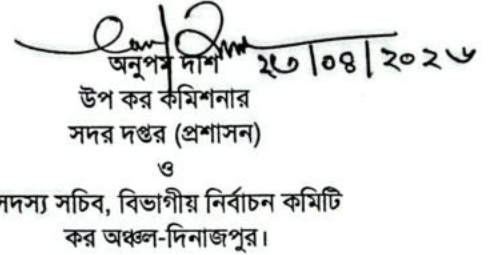 অনুপম দাশ
২৩/০৪/২০২৬
উপ কর কমিশনার
সদর দপ্তর (প্রশাসন)
ও
সদস্য সচিব, বিভাগীয় নির্বাচন কমিটি
কর অঞ্চল-দিনাজপুর।